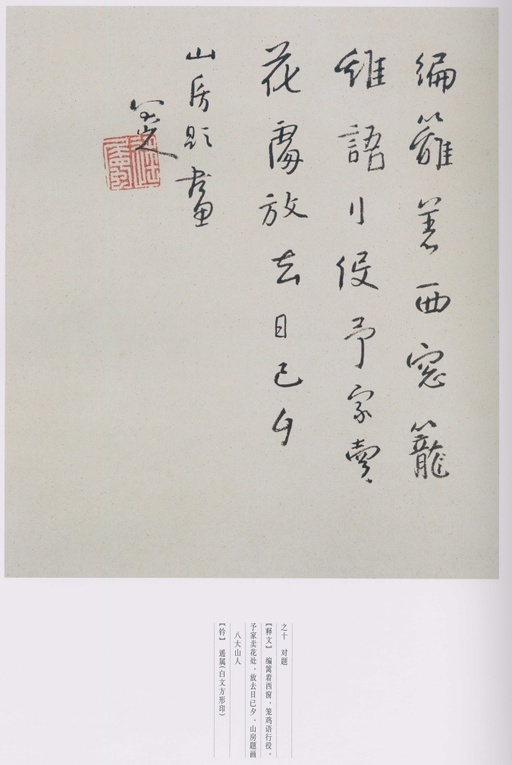 编篱着西窓籠
雞語行役予家賣
花處放去日已夕
山房題畫
八大山人
之十 对题
【释文】 编篱着西窗，笼鸡语行役。
予家卖花处，放去日已夕。山房题画
八大山人
【钤】 遥属（白文方形印）